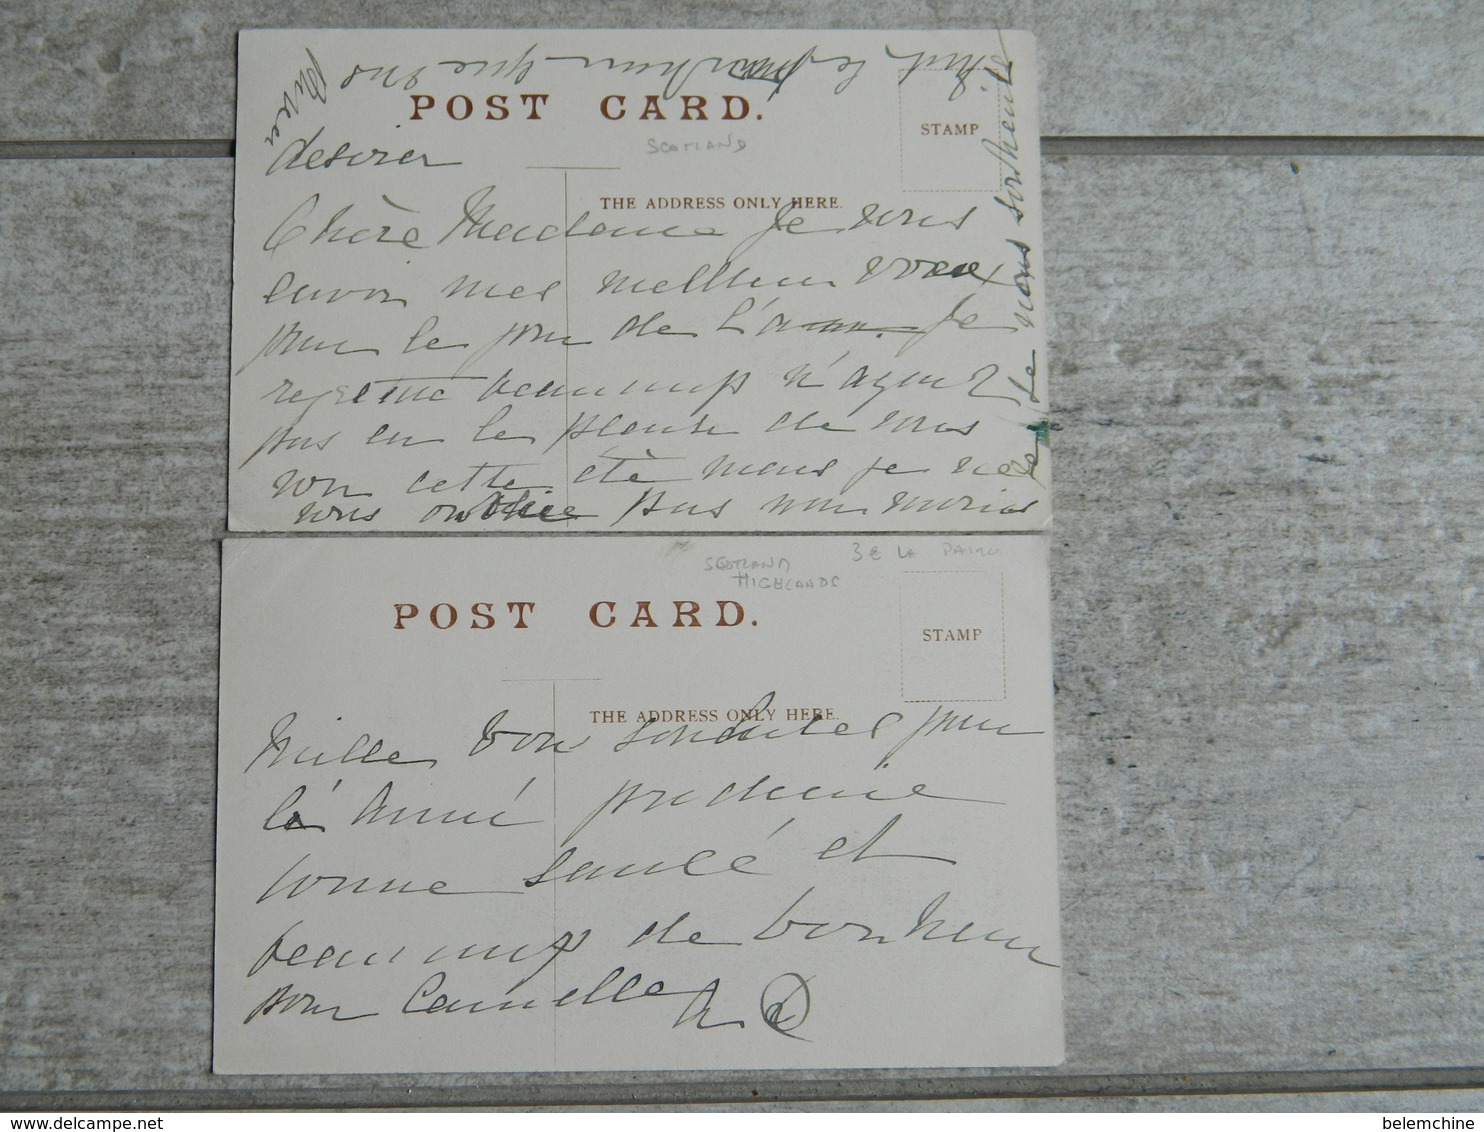 POST CARD.
SCOTLAND
STAMP
THE ADDRESS ONLY HERE.
desirer
Chère Madame Je vous
envoi mes meilleur voeux
pour le jour de L'an. Je
regrette beaucoup n'ayons
pas eu le plaisir de vous
voir cette été mais je ne
vous oublie pas non moins
Je te vous souhaite
tout le bonheur que vous
puvez
SCOTLAND
HIGHLANDS
3€ LA PAIRE
POST CARD.
STAMP
THE ADDRESS ONLY HERE.
Mille bons souhaites pour
la Année prochaine
bonne santé et
beaucoup de bonheur
pour Camille
belemchine